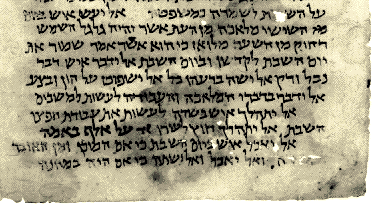 על השבת לשמרה כמשפטה אל יעש איש ביום
הששי מלאכה מן העת אשר יהיה גלגל השמש
רחוק מן השער מלואו כי הוא אשר אמר שמור את
יום השבת לקדשו וביום השבת אל ידבר איש דבר
נבל ורק אל ישה ברעהו כל אל ישפוט על הון ובצע
אל ידבר בדברי המלאכה והעבודה לעשות למשכים
אל יתהלך איש בשדה לעשות את עבודת חפצו
השבת אל יתהלך חוץ לעירו אך על אלף באמה
אל יאכל איש ביום השבת כי אם המוכן ומן האובד
ואל יאכל ואל ישתה כי אם היה במחנה